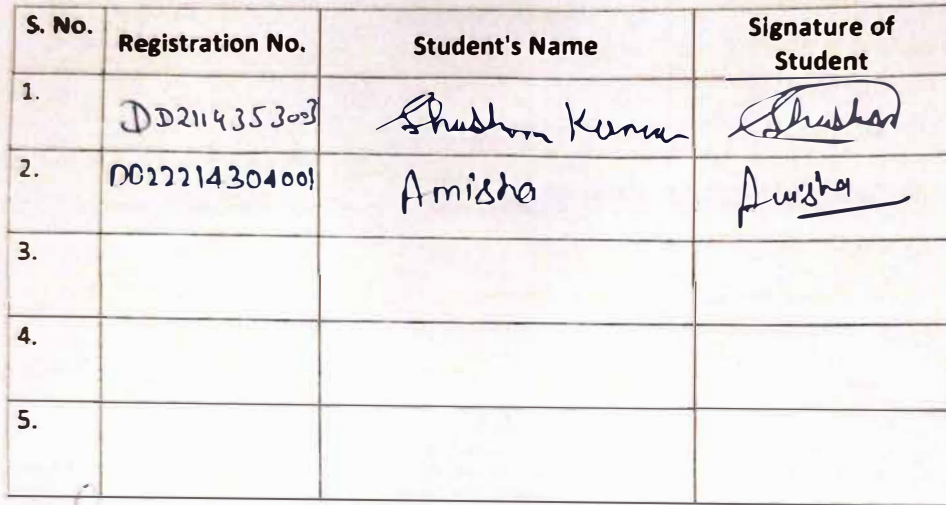 S. No. Registration No. Student's Name Signature of Student
1. DD211435303 Kumar
2. DC22214304001 Amisha Amisha
3.
4.
5.